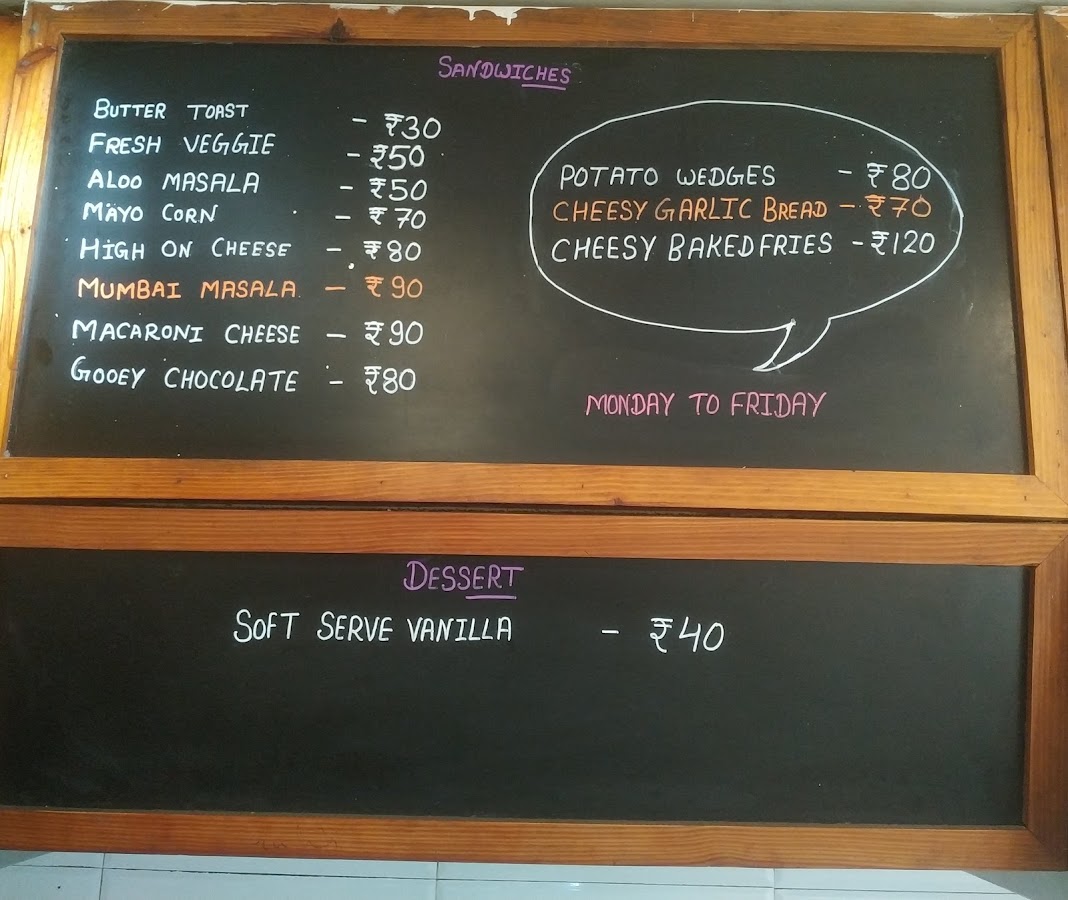 SANDWICHES
BUTTER TOAST - ₹30
FRESH VEGGIE - ₹50
ALOO MASALA - ₹50
MAYO CORN - ₹70
HIGH ON CHEESE - ₹80
MUMBAI MASALA - ₹90
MACARONI CHEESE - ₹90
GOOEY CHOCOLATE - ₹80
POTATO WEDGES - ₹80
CHEESY GARLIC BREAD - ₹70
CHEESY BAKED FRIES - ₹120
MONDAY TO FRIDAY
DESSERT
SOFT SERVE VANILLA - ₹40